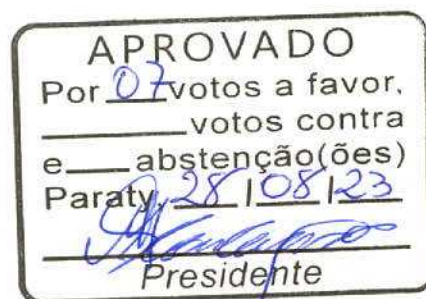 APROVADO
Por 07 votos a favor,
______votos contra
e___abstenção(ões)
Paraty, 28 | 08 | 23
Presidente